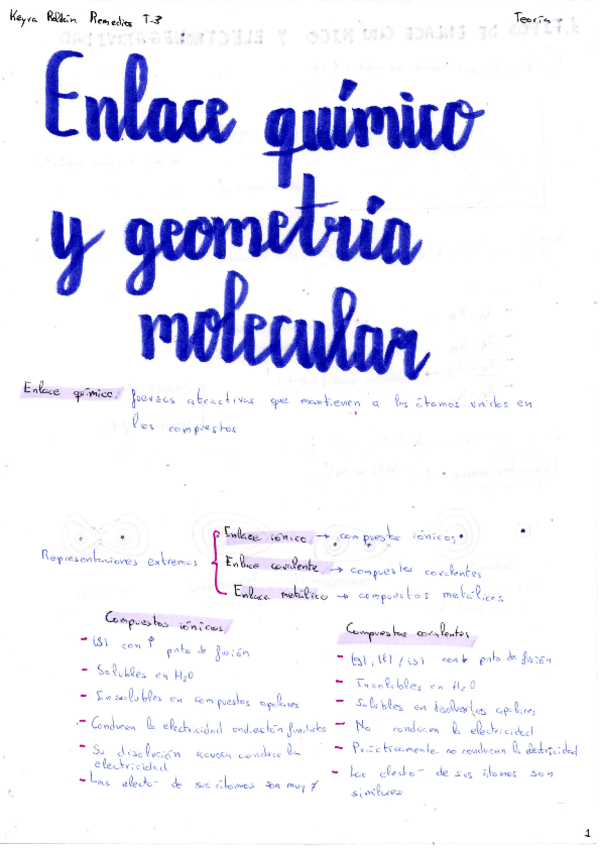 Keyra Roldán Remedios T-3
Teoría
Enlace químico
y geometría
molecular
Enlace químico: fuerzas atractivas que mantienen a los átomos unidos en
los compuestos
Representaciones extremas
Enlace iónico → compuestos iónicos
Enlace covalente → compuestos covalentes
Enlace metálico → compuestos metálicos
Compuestos iónicos
- (s) con ↑ pnto de fusión
- Solubles en H2O
- Insolubles en compuestos apolares
- Conducen la electricidad cnd están fundidos
- Su disolución acuosa conduce la
electricidad
- Las electo- de sus átomos son muy ≠
Compuestos covalentes
- (g), (l) / (s) con ↓ pnto de fusión
- Insolubles en H2O
- Solubles en disolventes apolares
- No conducen la electricidad
- Prácticamente no conducen la electricidad
- Las electo- de sus átomos son
similares
1